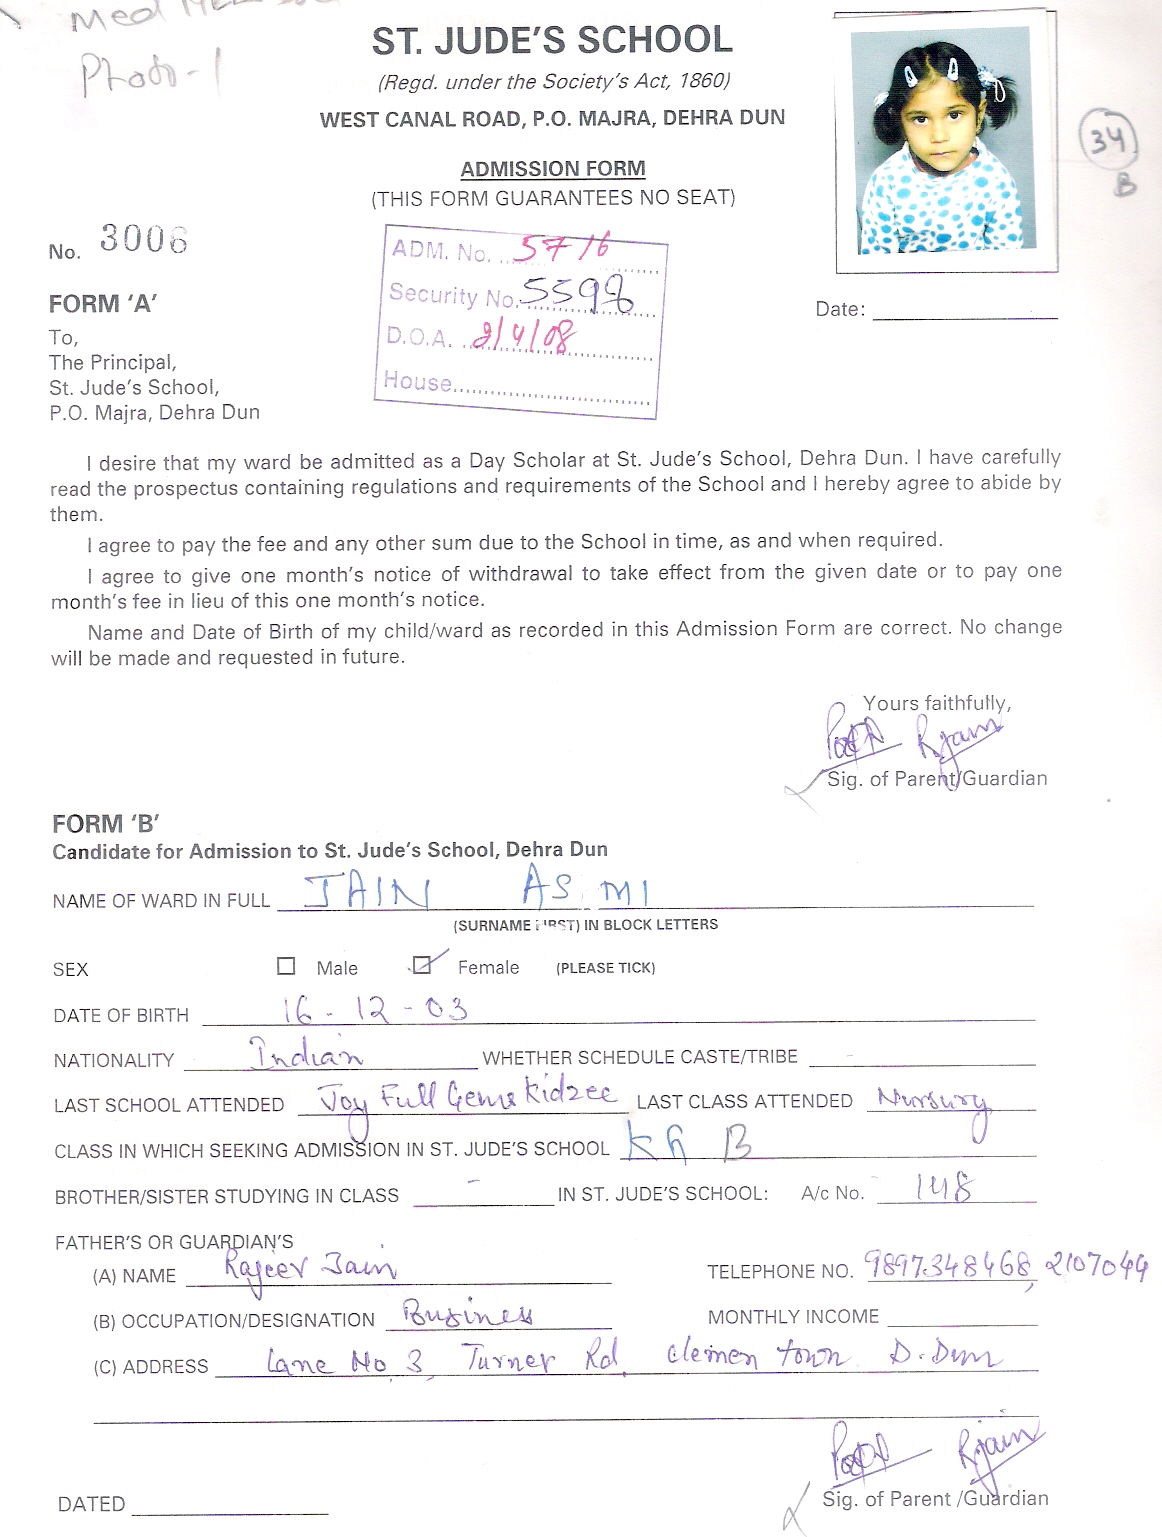 Med
Photo-1
ST. JUDE'S SCHOOL
(Regd. under the Society's Act, 1860)
WEST CANAL ROAD, P.O. MAJRA, DEHRA DUN
34
B
ADMISSION FORM
(THIS FORM GUARANTEES NO SEAT)
No. 3006
ADM. No. 5716
Security No. 5598
D.O.A. 2/4/08
House
FORM 'A'
Date:
To,
The Principal,
St. Jude's School,
P.O. Majra, Dehra Dun
I desire that my ward be admitted as a Day Scholar at St. Jude's School, Dehra Dun. I have carefully
read the prospectus containing regulations and requirements of the School and I hereby agree to abide by
them.
I agree to pay the fee and any other sum due to the School in time, as and when required.
I agree to give one month's notice of withdrawal to take effect from the given date or to pay one
month's fee in lieu of this one month's notice.
Name and Date of Birth of my child/ward as recorded in this Admission Form are correct. No change
will be made and requested in future.
Yours faithfully,
Rjain
Sig. of Parent/Guardian
FORM 'B'
Candidate for Admission to St. Jude's School, Dehra Dun
NAME OF WARD IN FULL JAIN ASMI
(SURNAME FIRST) IN BLOCK LETTERS
SEX Male Female (PLEASE TICK)
DATE OF BIRTH 16-12-03
NATIONALITY Indian WHETHER SCHEDULE CASTE/TRIBE -
LAST SCHOOL ATTENDED Joy Full Gems Kidzee LAST CLASS ATTENDED Nursury
CLASS IN WHICH SEEKING ADMISSION IN ST. JUDE'S SCHOOL KG B
BROTHER/SISTER STUDYING IN CLASS - IN ST. JUDE'S SCHOOL: A/c No. 148
FATHER'S OR GUARDIAN'S
(A) NAME Rajeev Jain TELEPHONE NO. 9897348468, 2107049
(B) OCCUPATION/DESIGNATION Business MONTHLY INCOME
(C) ADDRESS Lane No 3, Turner Rd, Clemen town D.Dun
Rjain
DATED Sig. of Parent /Guardian